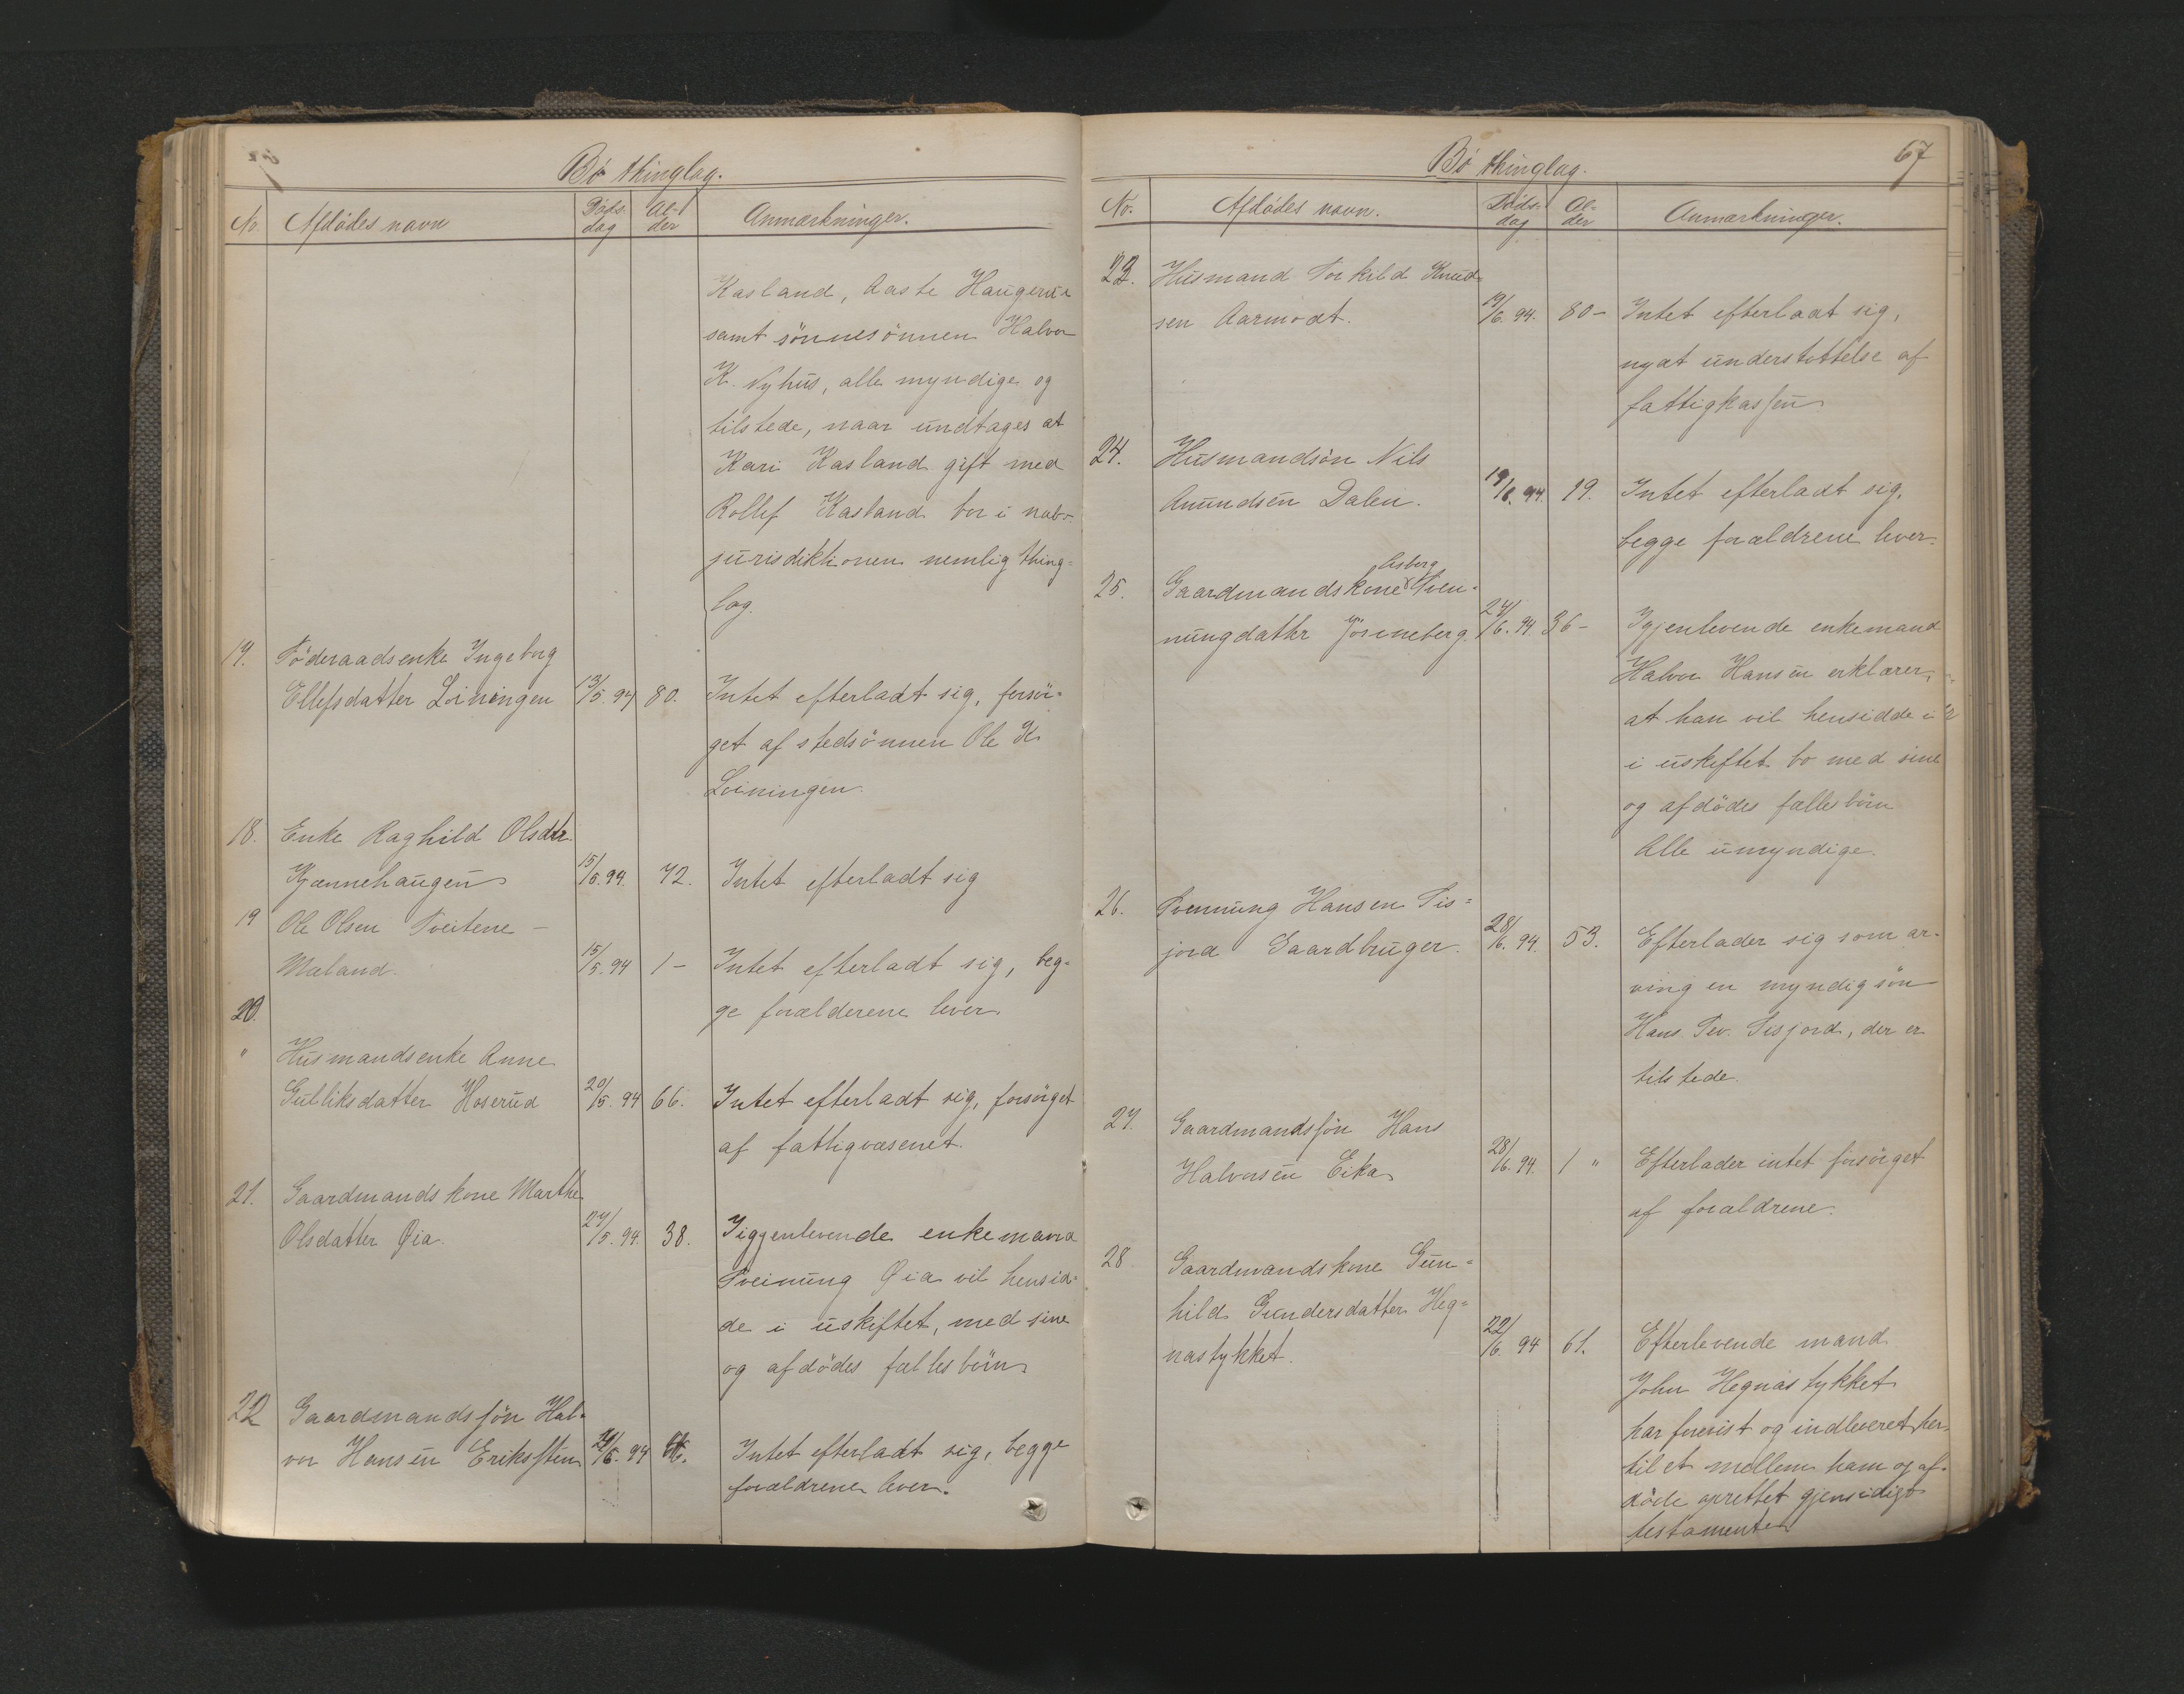 Bø thinglag.
No. Afdødes navn Dødsdag Alder Anmærkninger.
Kasland, Aaste Haugerui
samt sønnesønnen Halvor
K. Nyhus, alle myndige og
tilstede, naar undtages at
Kari Kasland gift med
Rollef Kasland bor i nabo-
jurisdiktionen nemlig thing-
lag.
17. Føderaadsenke Ingeborg
Ellefsdatter Loiningen 13/5. 94 80. Intet efterladt sig, forsør-
get af stedsønnen Ole K.
Loiningen.
18. Enke Raghild Olsdtr.
Kjønnehaugen 15/5. 94. 72. Intet efterladt sig
19 Ole Olsen Tveitene –
Mæland. 15/5. 94 1 – Intet efterladt sig, beg-
ge forælderene lever.
20.
" Husmandsenke Anne
Gulliksdatter Hoserud 20/5. 94 66. Intet efterladt sig, forsørget
af fattigvæsenet.
21. Gaardmandskone Marthe
Olsdatter Øia. 27/5. 94. 38. Iggjenlevende enkemand
Tveinung Øia vil hensid-
de i uskiftet, med sine
og afdødes fællesbørn
22 Gaardmandssøn Hal-
vor Hansen Eriksstein /6. 94 Intet efterladt sig, begge
forældrene lever.
Bø thinglag. 67
No. Afdødes navn. Dødsdag Alder Anmærkninger.
23. Husmand Torkild Knud-
sen Aarmodt. 19/6. 94. 80 – Intet efterladt sig,
nydt understøttelse af
fattigkassen
24. Husmandsøn Nils
Amundsen Dalen. 19/6. 94. 19. Intet efterladt sig,
begge forældrene lever.
Aasberg
25. Gaardmandskone Tven-
nungdatter Jønneberg. 24/6. 94. 36 – Igjenlevende enkemand
Halvor Hansen erklærer,
at han vil hensidde i
i uskiftet bo med sine
og afdødes fællesbørn
Alle umyndige.
26. Tvennung Hansen Tis-
jord Gaardbruger. 28/6. 94. 53. Efterlader sig som ar-
ving en myndig søn
Hans Tv. Tisjord, der er
tilstede.
27. Gaardmandssøn Hans
Halvorsen Eika 28/6. 94. 1 " Efterlader intet forsørget
af forældrene.
28 Gaardmandskone Gun-
hild Gundersdatter Heg-
nastykket. 22/6. 94 61. Efterlevende mand
John Hegnastykket
har forevist og indleveret her-
til et mellem ham og af-
døde oprettet gjensidigt
testamente